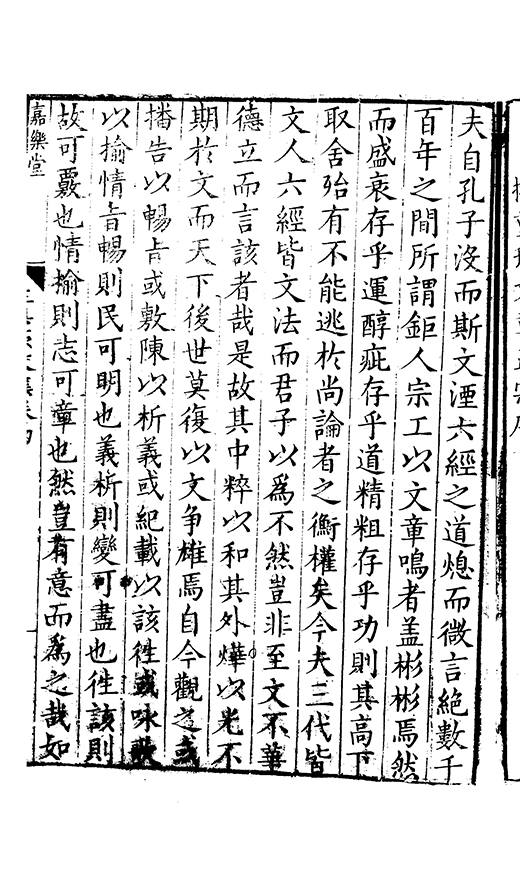 夫自孔子沒而斯文湮六經之道熄而微言絕數千
百年之間所謂鉅人宗工以文章鳴者盖彬彬焉然
而盛衰存乎運醇疵存乎道精粗存乎功則其高下
取舍殆有不能逃於尚論者之衡權矣今夫三代皆
文人六經皆文法而君子以爲不然豈非至文不華
德立而言該者哉是故其中粹以和其外燁以光不
期於文而天下後世莫復以文争雄焉自今觀之或
播告以暢旨或敷陳以析義或紀載以該徃或咏歌
以揄情旨暢則民可明也義析則變可盡也徃該則
故可覈也情揄則志可章也然豈有意而爲之哉如
嘉樂堂